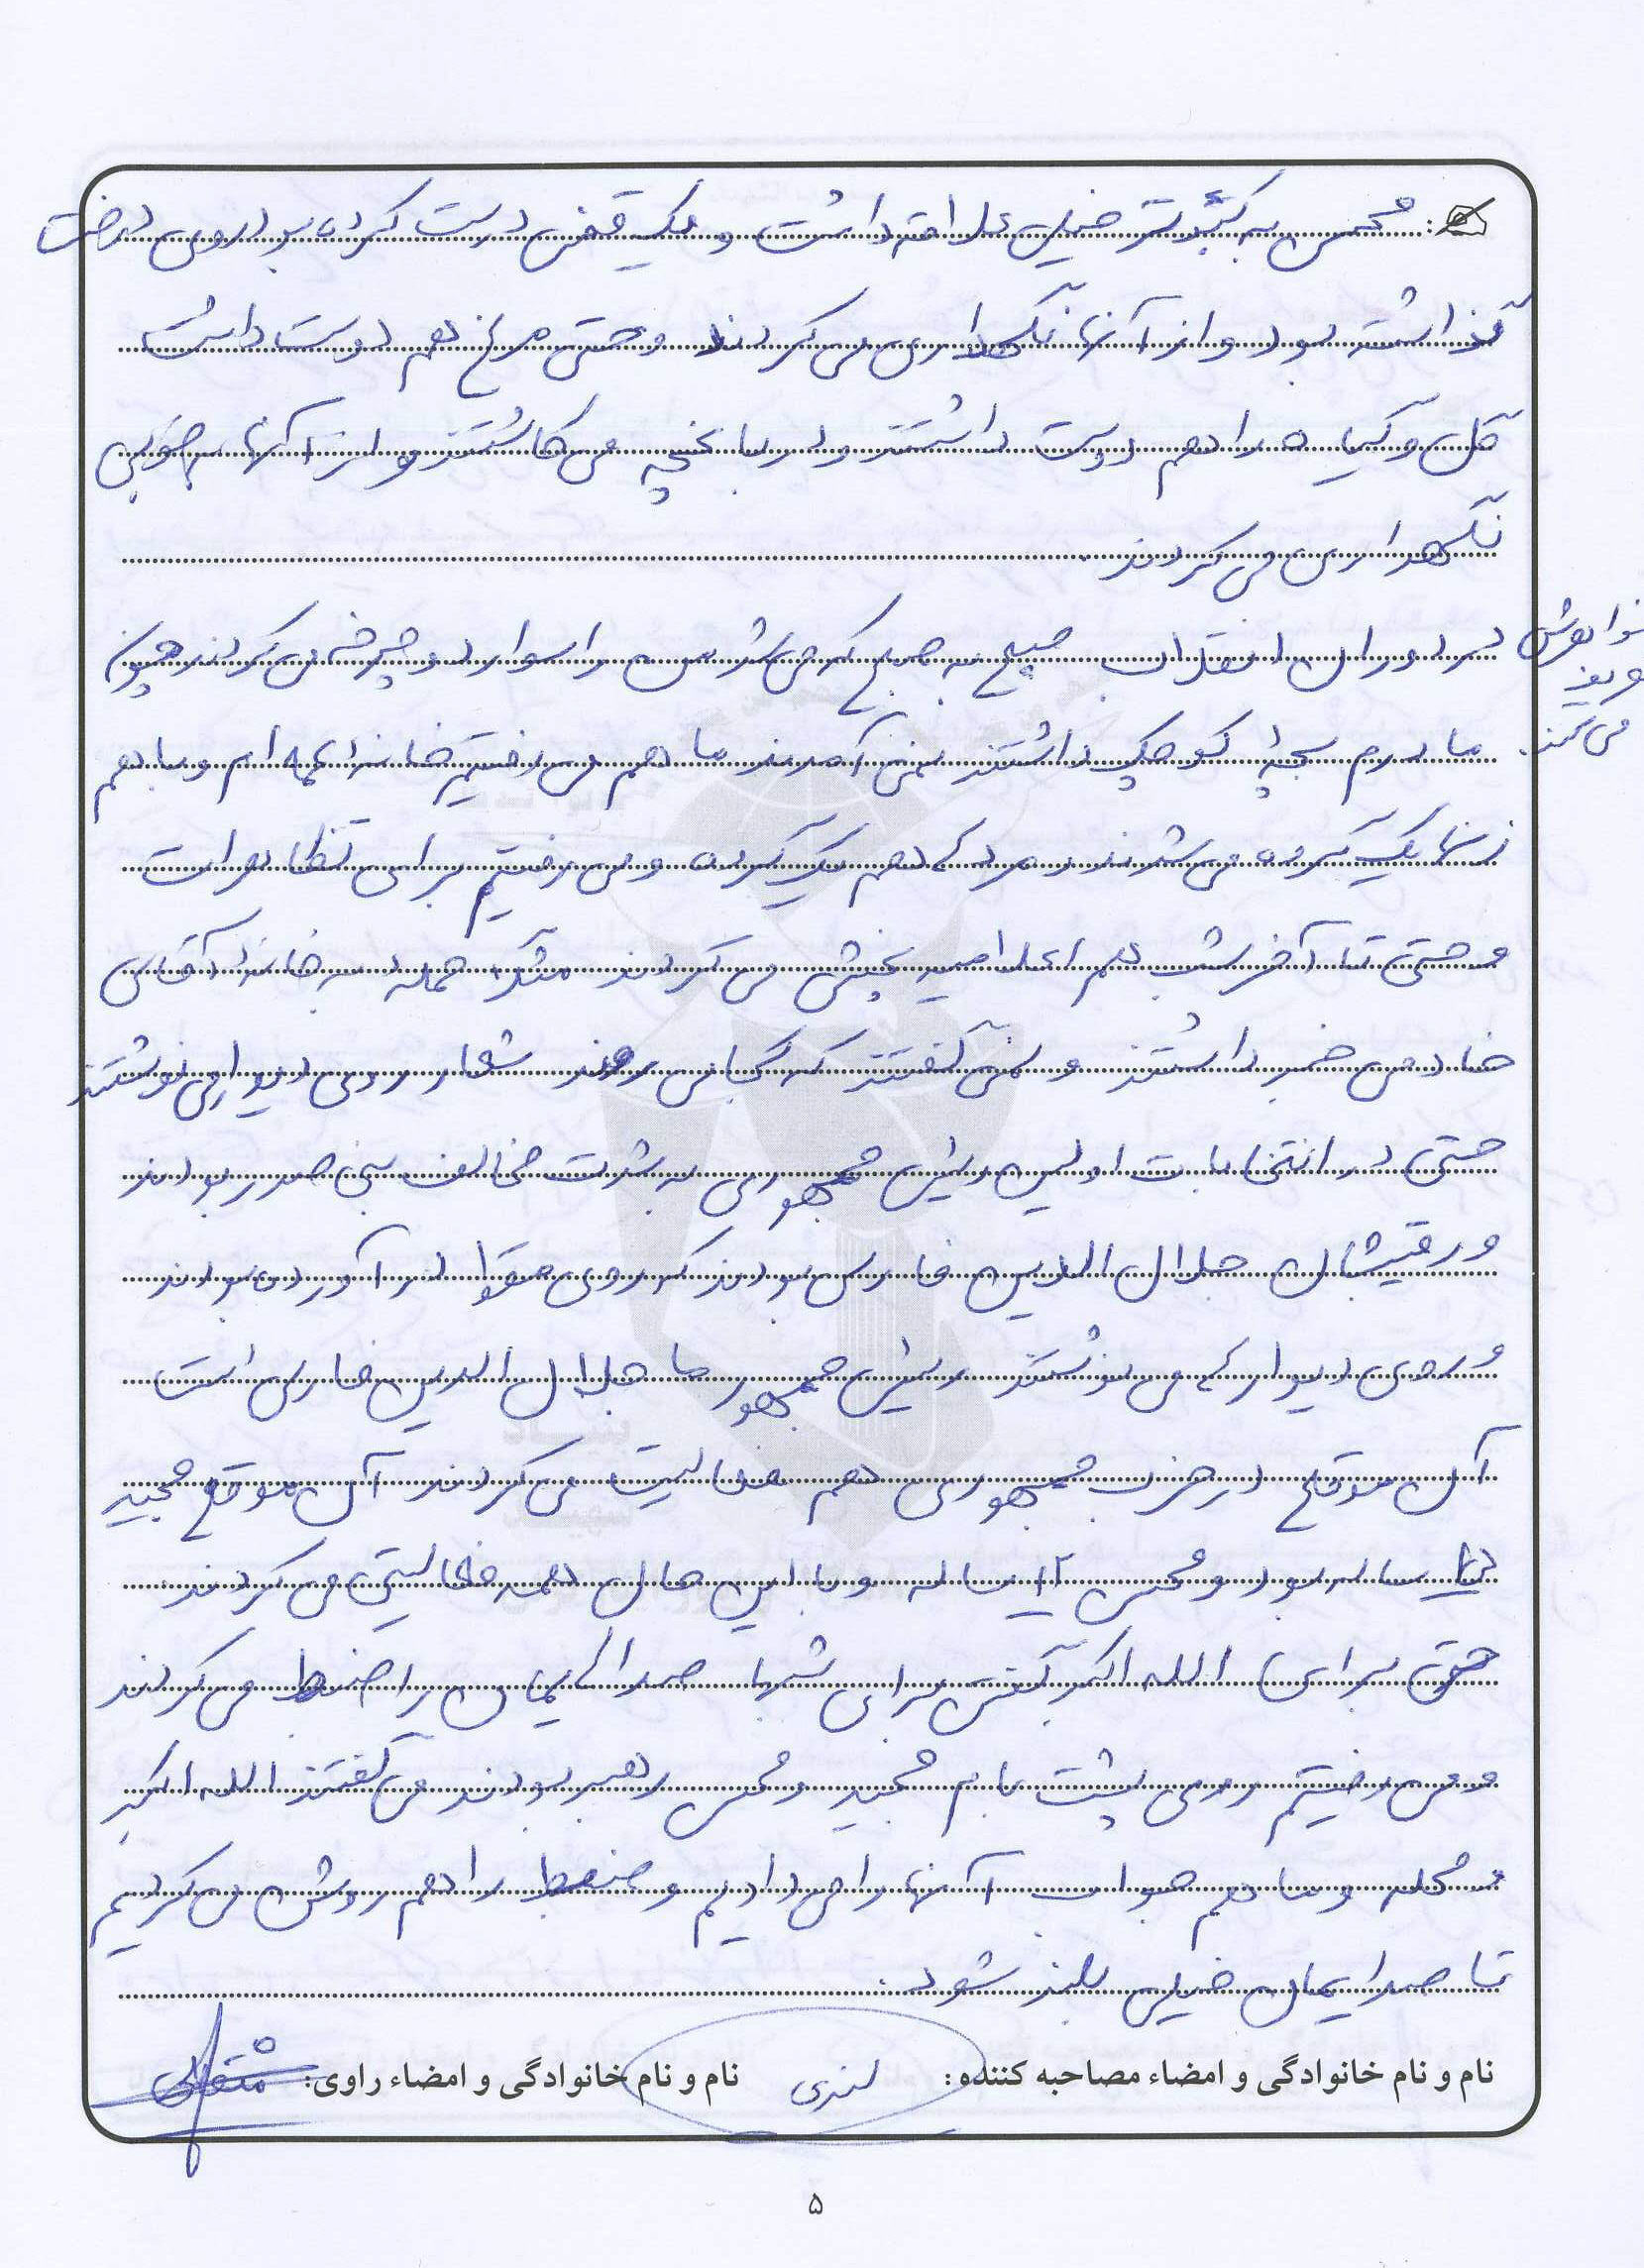 محسن به کبوتر خیلی علاقه داشت و یک قفس درست کرده بود روی درخت
گذاشته بود و از آنها نگهداری می کردند و حتی مرغ هم دوست داشت
گل و گیاه را هم دوست داشتند و در باغچه می کاشتند و از آنها به خوبی
نگهداری می کردند.
خواهرش
تعریف
می کند.
در دوران انقلاب صبح به صبح که می شد من را سوار دوچرخه می کردند چون
مادرم بچۀ کوچک داشتند نمی آمدند ما هم می رفتیم خانۀ عمه ام و با هم
زنها یک گروه می شدند و مردها هم یک گروه و می رفتیم برای تظاهرات
و حتی تا آخر شب هم اعلامیه پخش می کردند مثلاً حمله به خانۀ آقای
خادمی خبر داشتند و نمی گفتند که کجا می روند شعار روی دیوار می نوشتند
حتی در انتخابات اولین رئیس جمهوری به شدت مخالف بنی صدر بودند
و رقیبشان جلال الدین فارسی بودند که روی مقوا در آورده بودند
و روی دیوارها می نوشتند رئیس جمهور ما جلال الدین فارسی است
آن موقع در حزب جمهوری هم فعالیت می کردند آن موقع مجید
ساله بود و محسن ۱۲ ساله و با این حال همه فعالیتی می کردند
حتی برای الله اکبر گفتن برای شبها صداهایمان را ضبط می کردند
و می رفتیم روی پشت بام مجید و محسن رهبر بودند می گفتند الله اکبر
و محله و ما هم جواب آنها را می دادیم و ضبط را هم روشن می کردیم
تا صدایمان خیلی بلند شود.
نام و نام خانوادگی و امضاء مصاحبه کننده: نام و نام خانوادگی و امضاء راوی:
۵